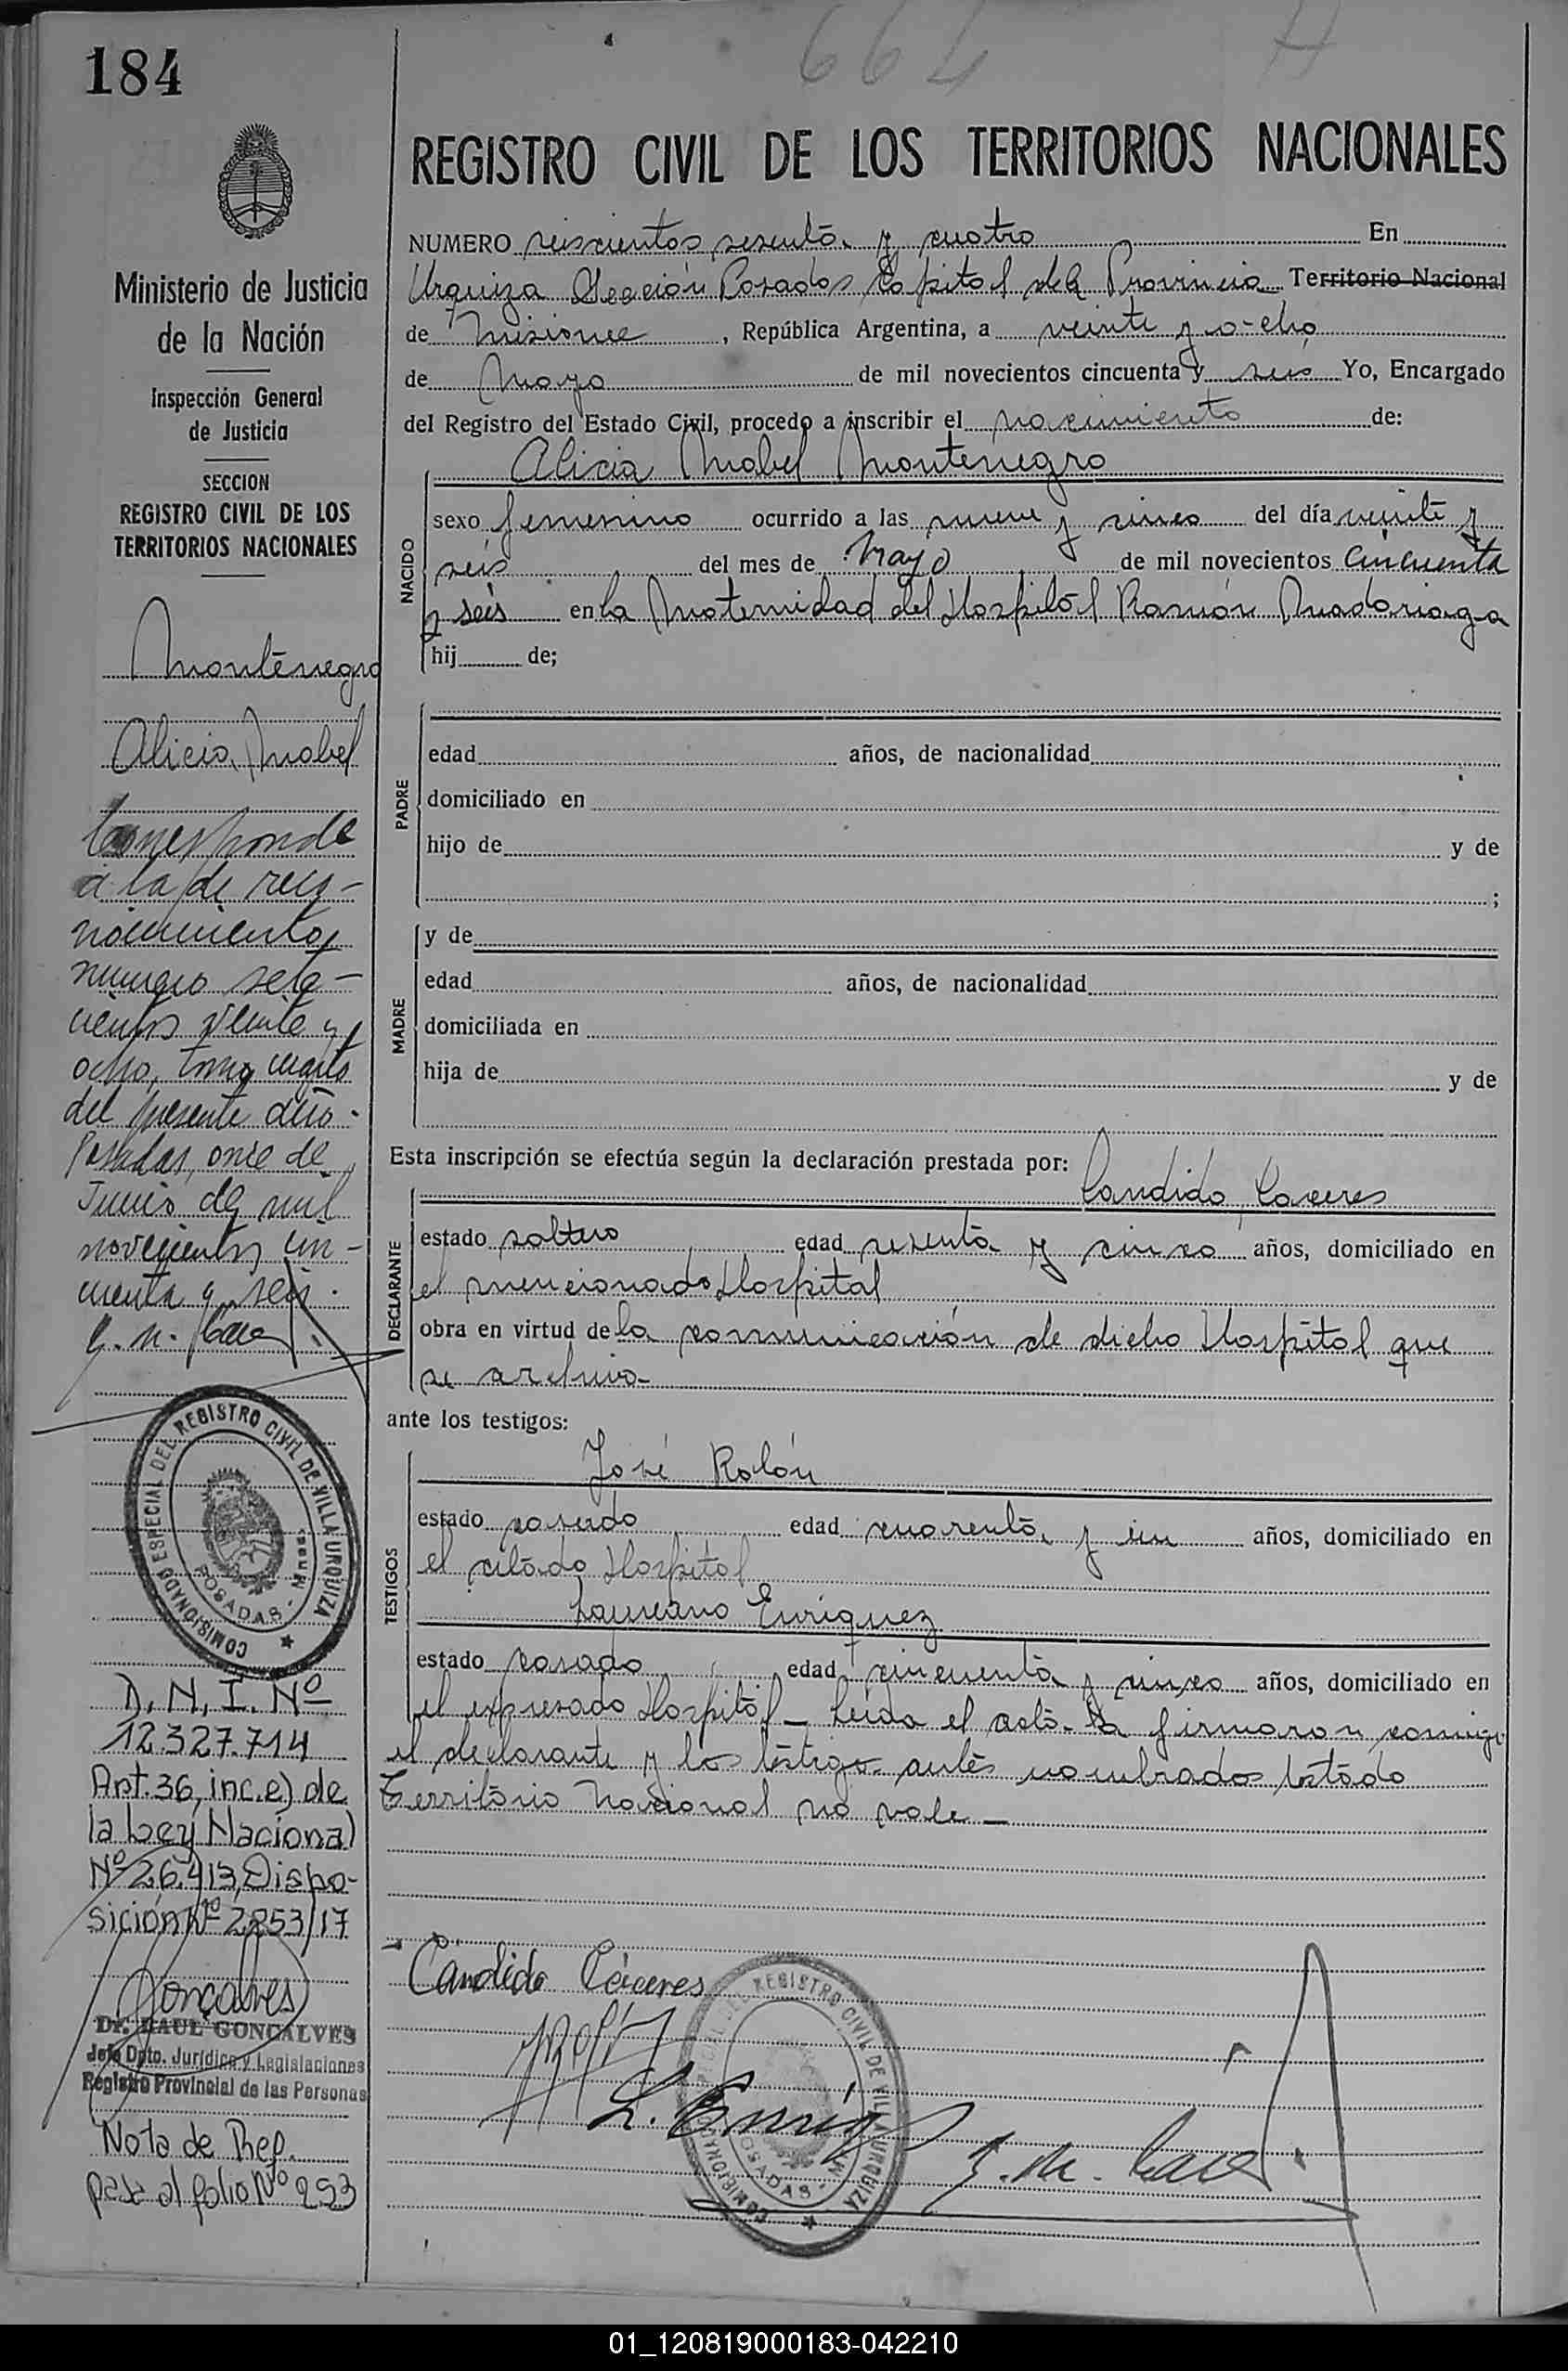 184
664
H
REGISTRO CIVIL DE LOS TERRITORIOS NACIONALES
Ministerio de Justicia
de la Nación
Inspección General
de Justicia
SECCION
REGISTRO CIVIL DE LOS
TERRITORIOS NACIONALES
Montenegro
Alicia Mabel
Corresponde
a la de reco-
nocimiento
numero sete-
cientos veinte y
ocho, tomo cuarto
del presente año.
Posadas, once de
Junio de mil
novecientos cin-
cuenta y seis.
COMISIONADO ESPECIAL DEL REGISTRO CIVIL DE VILLA URQUIZA
POSADAS - Mnes.
D.N.I. Nº
12.327.714
Art. 36, inc. e) de
la Ley Nacional
Nº 26.413, Dispo-
sición Nº 2853/17
Gonçalves
Dr. RAUL GONCALVES
Jefe Dpto. Jurídico y Legislaciones
Registro Provincial de las Personas
Nota de Ref.
pase al folio Nº 253
NUMERO seiscientos sesenta y cuatro En
Urquiza Sección Posadas Capital de la Provincia Territorio Nacional
de Misiones, República Argentina, a veinte y ocho
de Mayo de mil novecientos cincuenta y seis Yo, Encargado
del Registro del Estado Civil, procedo a inscribir el nacimiento de:
Alicia Mabel Montenegro
NACIDO
sexo femenino ocurrido a las nueve y cinco del día veinte y
seis del mes de Mayo de mil novecientos cincuenta
y seis en la Maternidad del Hospital Ramón Madariaga
hij de;
PADRE
edad años, de nacionalidad
domiciliado en
hijo de y de
;
MADRE
y de
edad años, de nacionalidad
domiciliada en
hija de y de
Esta inscripción se efectúa según la declaración prestada por:
Candido Caceres
DECLARANTE
estado soltero edad sesenta y cinco años, domiciliado en
el mencionado Hospital
obra en virtud de la comunicación de dicho Hospital que
se archiva-
ante los testigos:
José Rolón
TESTIGOS
estado casado edad cuarenta y un años, domiciliado en
el citado Hospital
Laureano Enriquez
estado casado edad cincuenta y cinco años, domiciliado en
el expresado Hospital - Leida el acta la firmaron conmigo
el declarante y los testigos antes nombrados testado
Territorio Nacional no vale -
Cándido Cáceres
L. Enriq
COMISIONADO ESPECIAL DEL REGISTRO CIVIL DE VILLA URQUIZA
POSADAS - M
01_120819000183-042210